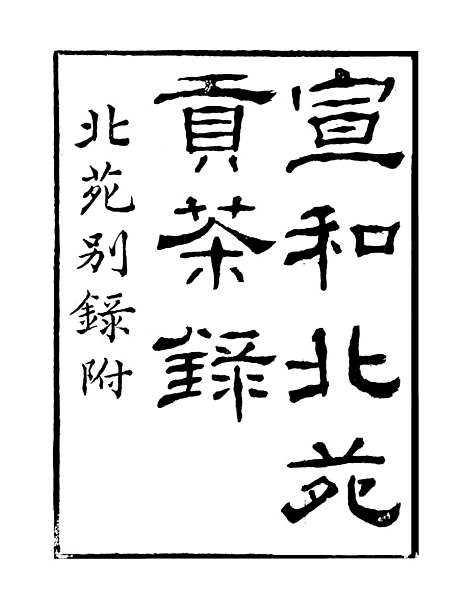 宣和北苑
貢茶録
北苑别録附